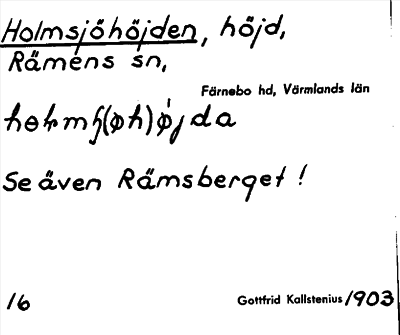 Holmsjöhöjden, höjd,
Rämens sn,
Färnebo hd, Värmlands län
Se även Rämsberget!
16
Gottfrid Kallstenius 1903